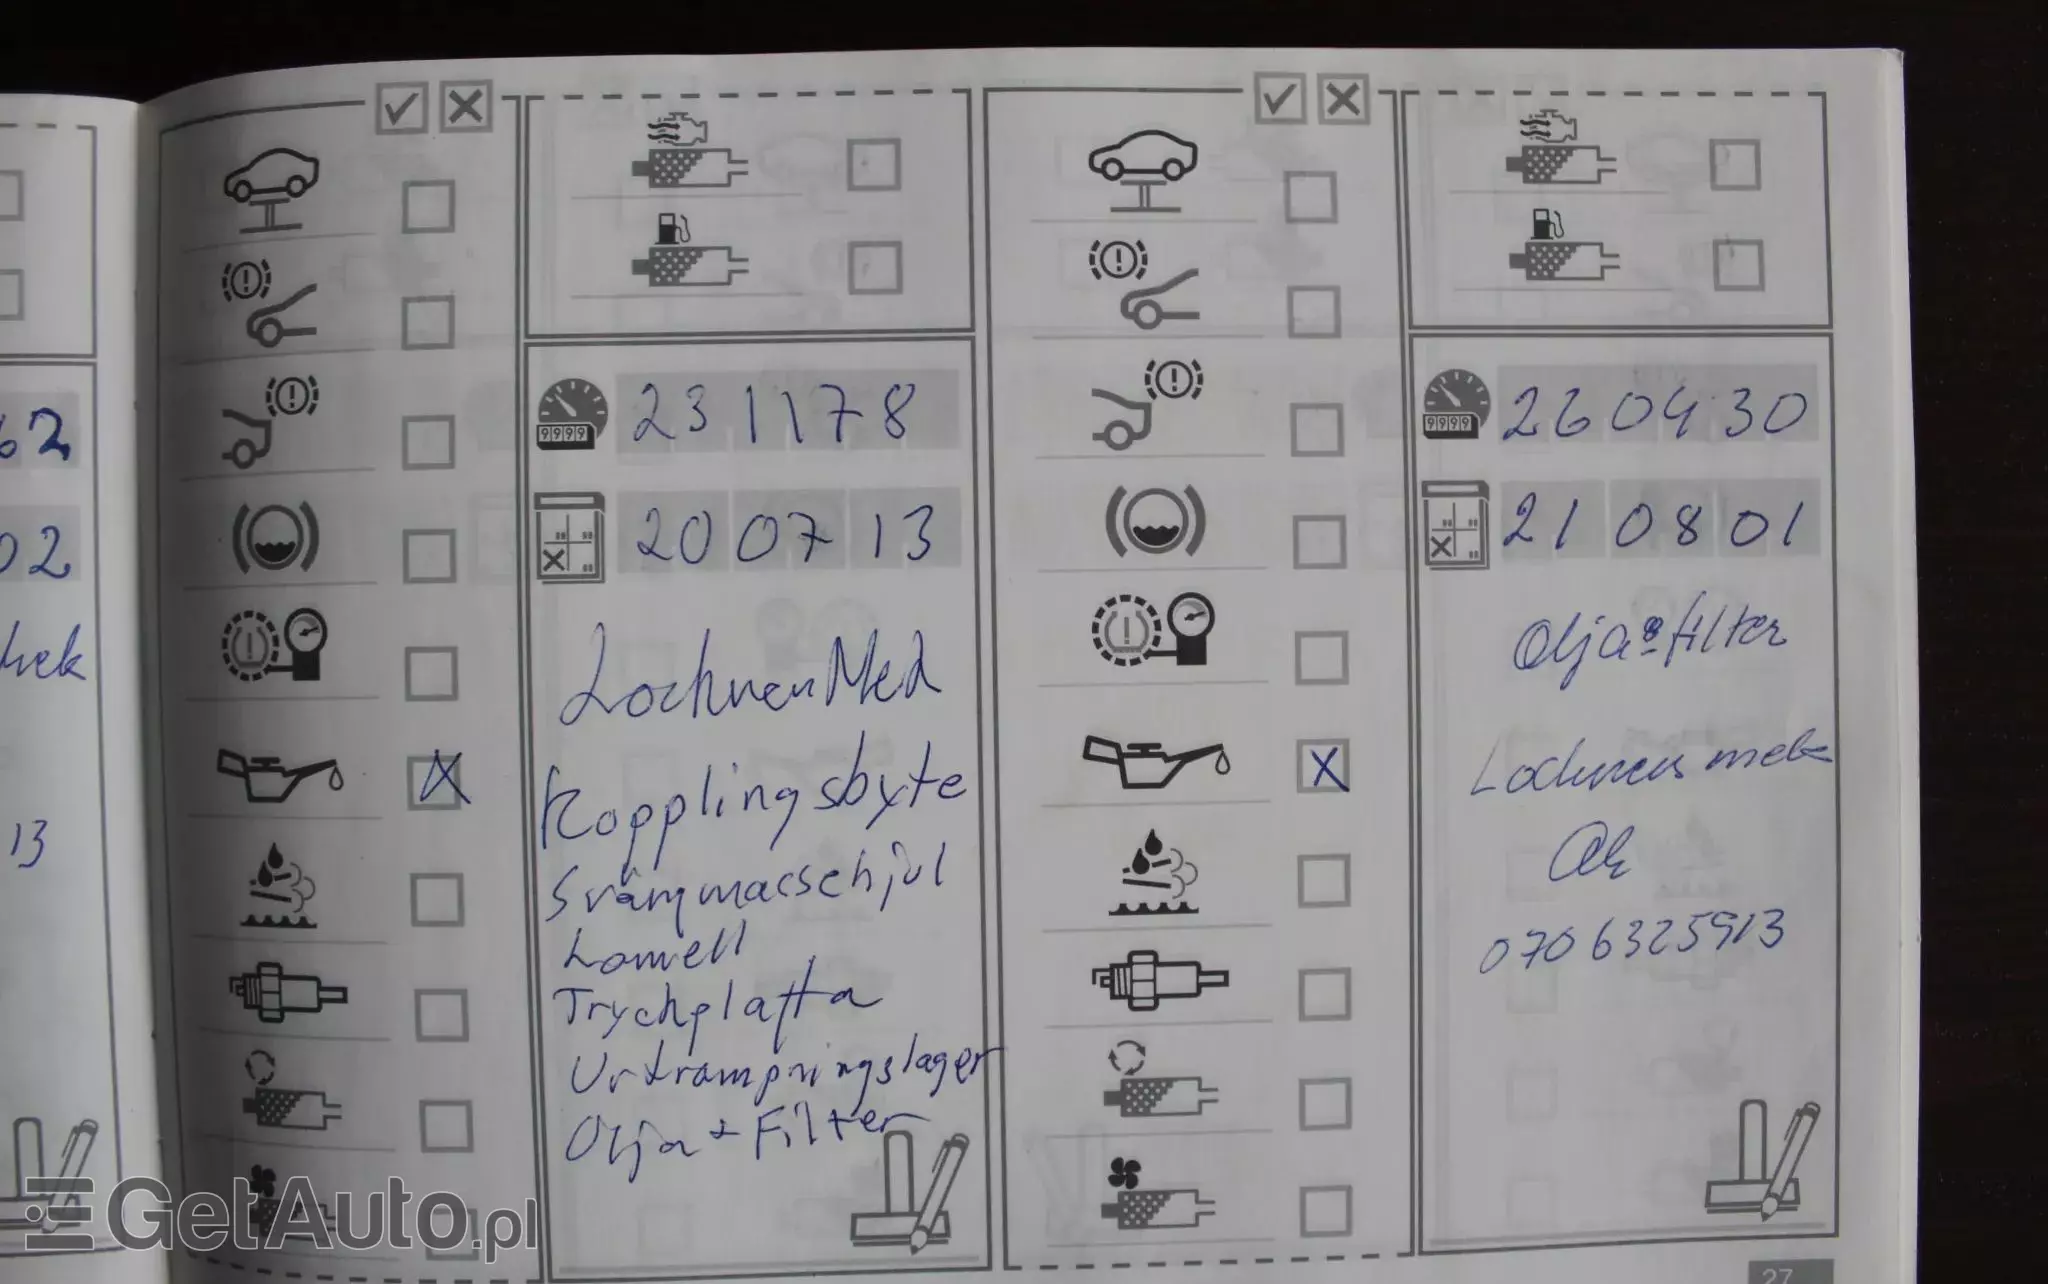 62
02
13
9999
231178
20 07 13
Lochnen Med
Kopplingsbyte
Svängmasschjul
Lamell
Tryckplatta
Urtrampningslager
Olja + Filter
9999
260430
21 08 01
Olja & filter
Lochnens mek
0706325913
27
GetAuto.pl